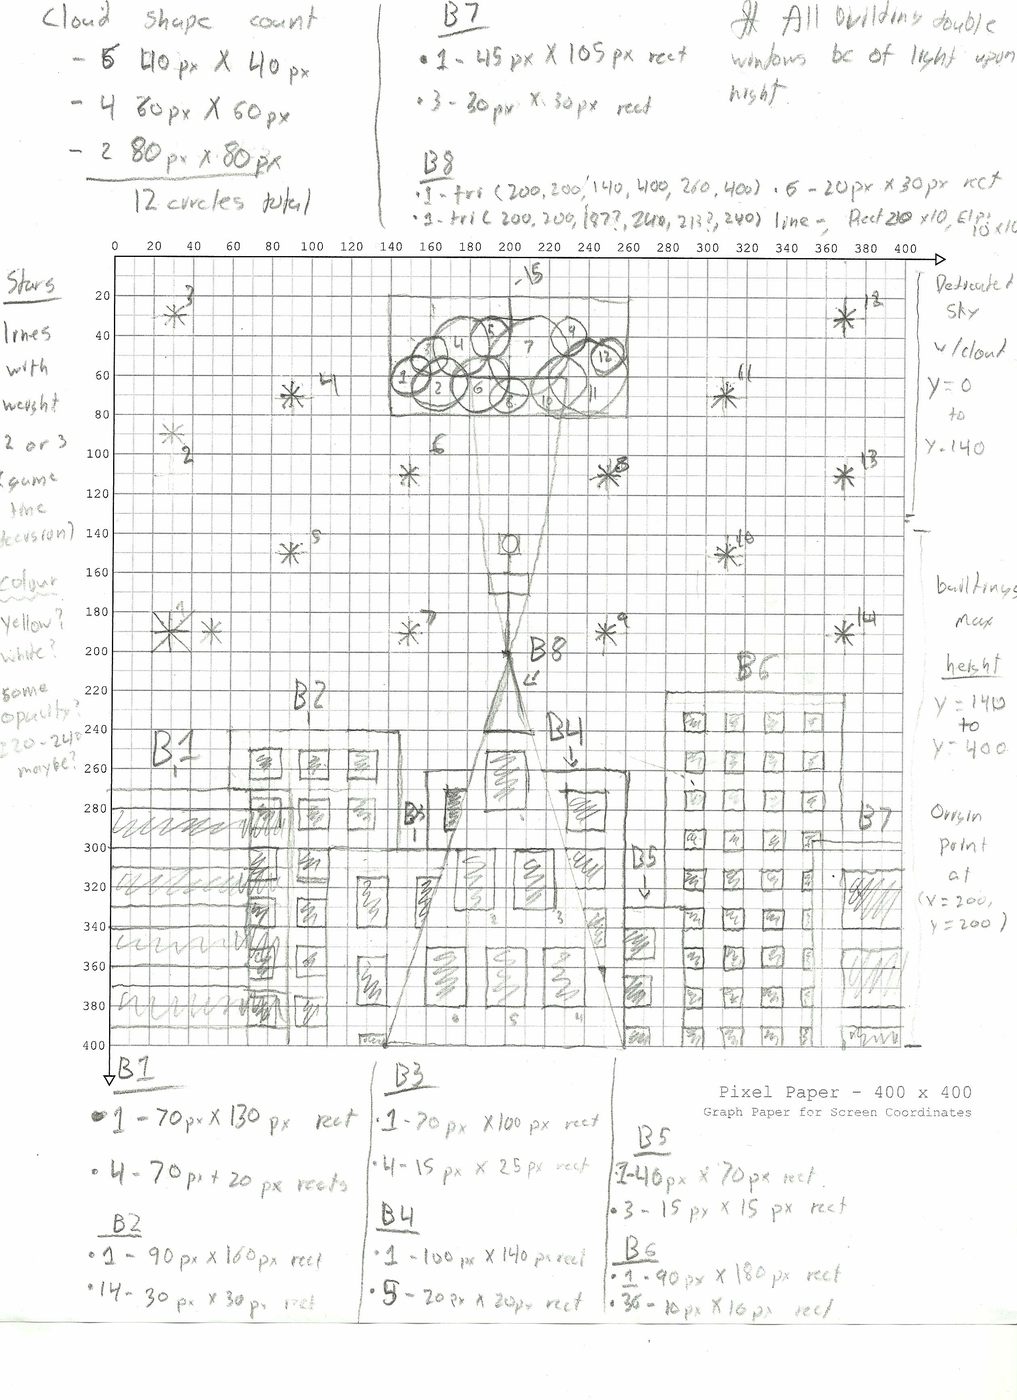 Cloud shape count
- 5 40px X 40px
- 4 60px X 60px
- 2 80px X 80px
12 circles total
B7
• 1 - 45px X 105px rect
• 3 - 30px X 30px rect
All building double
windows be of light upon
night.
B8
• 1 - tri (200, 200, 140, 400, 260, 400) • 6 - 20px X 30px rect
• 1 - tri (200, 200, 187?, 240, 213?, 240) line - Rect 20 x10,
10 x10
0 20 40 60 80 100 120 140 160 180 200 220 240 260 280 300 320 340 360 380 400
20
40
60
80
100
120
140
160
180
200
220
240
260
280
300
320
340
360
380
400
Stars
lines
with
weight
2 or 3
(game
time
decision)
colour
yellow?
white?
some
opacity?
220-240
maybe?
15
3
4
2
5
1
6
7
8
9
10
11
12
13
14
1
2
4
5
6
7
8
9
10
11
12
B1
B2
B3
B4
B5
B6
B7
B8
2
3
6
5
4
Dedicated
sky
w/cloud
y=0
to
y=140
buildings
max
height
y=140
to
y=400
Origin
point
at
(x=200,
y=200)
Pixel Paper - 400 x 400
Graph Paper for Screen Coordinates
B1
• 1 - 70px X 130 px rect
• 4 - 70px + 20 px rects
B2
• 1 - 90px X 160px rect
• 14 - 30 px X 30px rect
B3
• 1 - 70px X 100px rect
• 4 - 15 px X 25px rect
B4
• 1 - 100px X 140 px rect
• 9 - 20px X 20px rect
B5
• 1 - 40px X 70px rect.
• 3 - 15 px X 15 px rect
B6
• 1 - 90px X 180px rect
• 36 - 10px X 10px rect